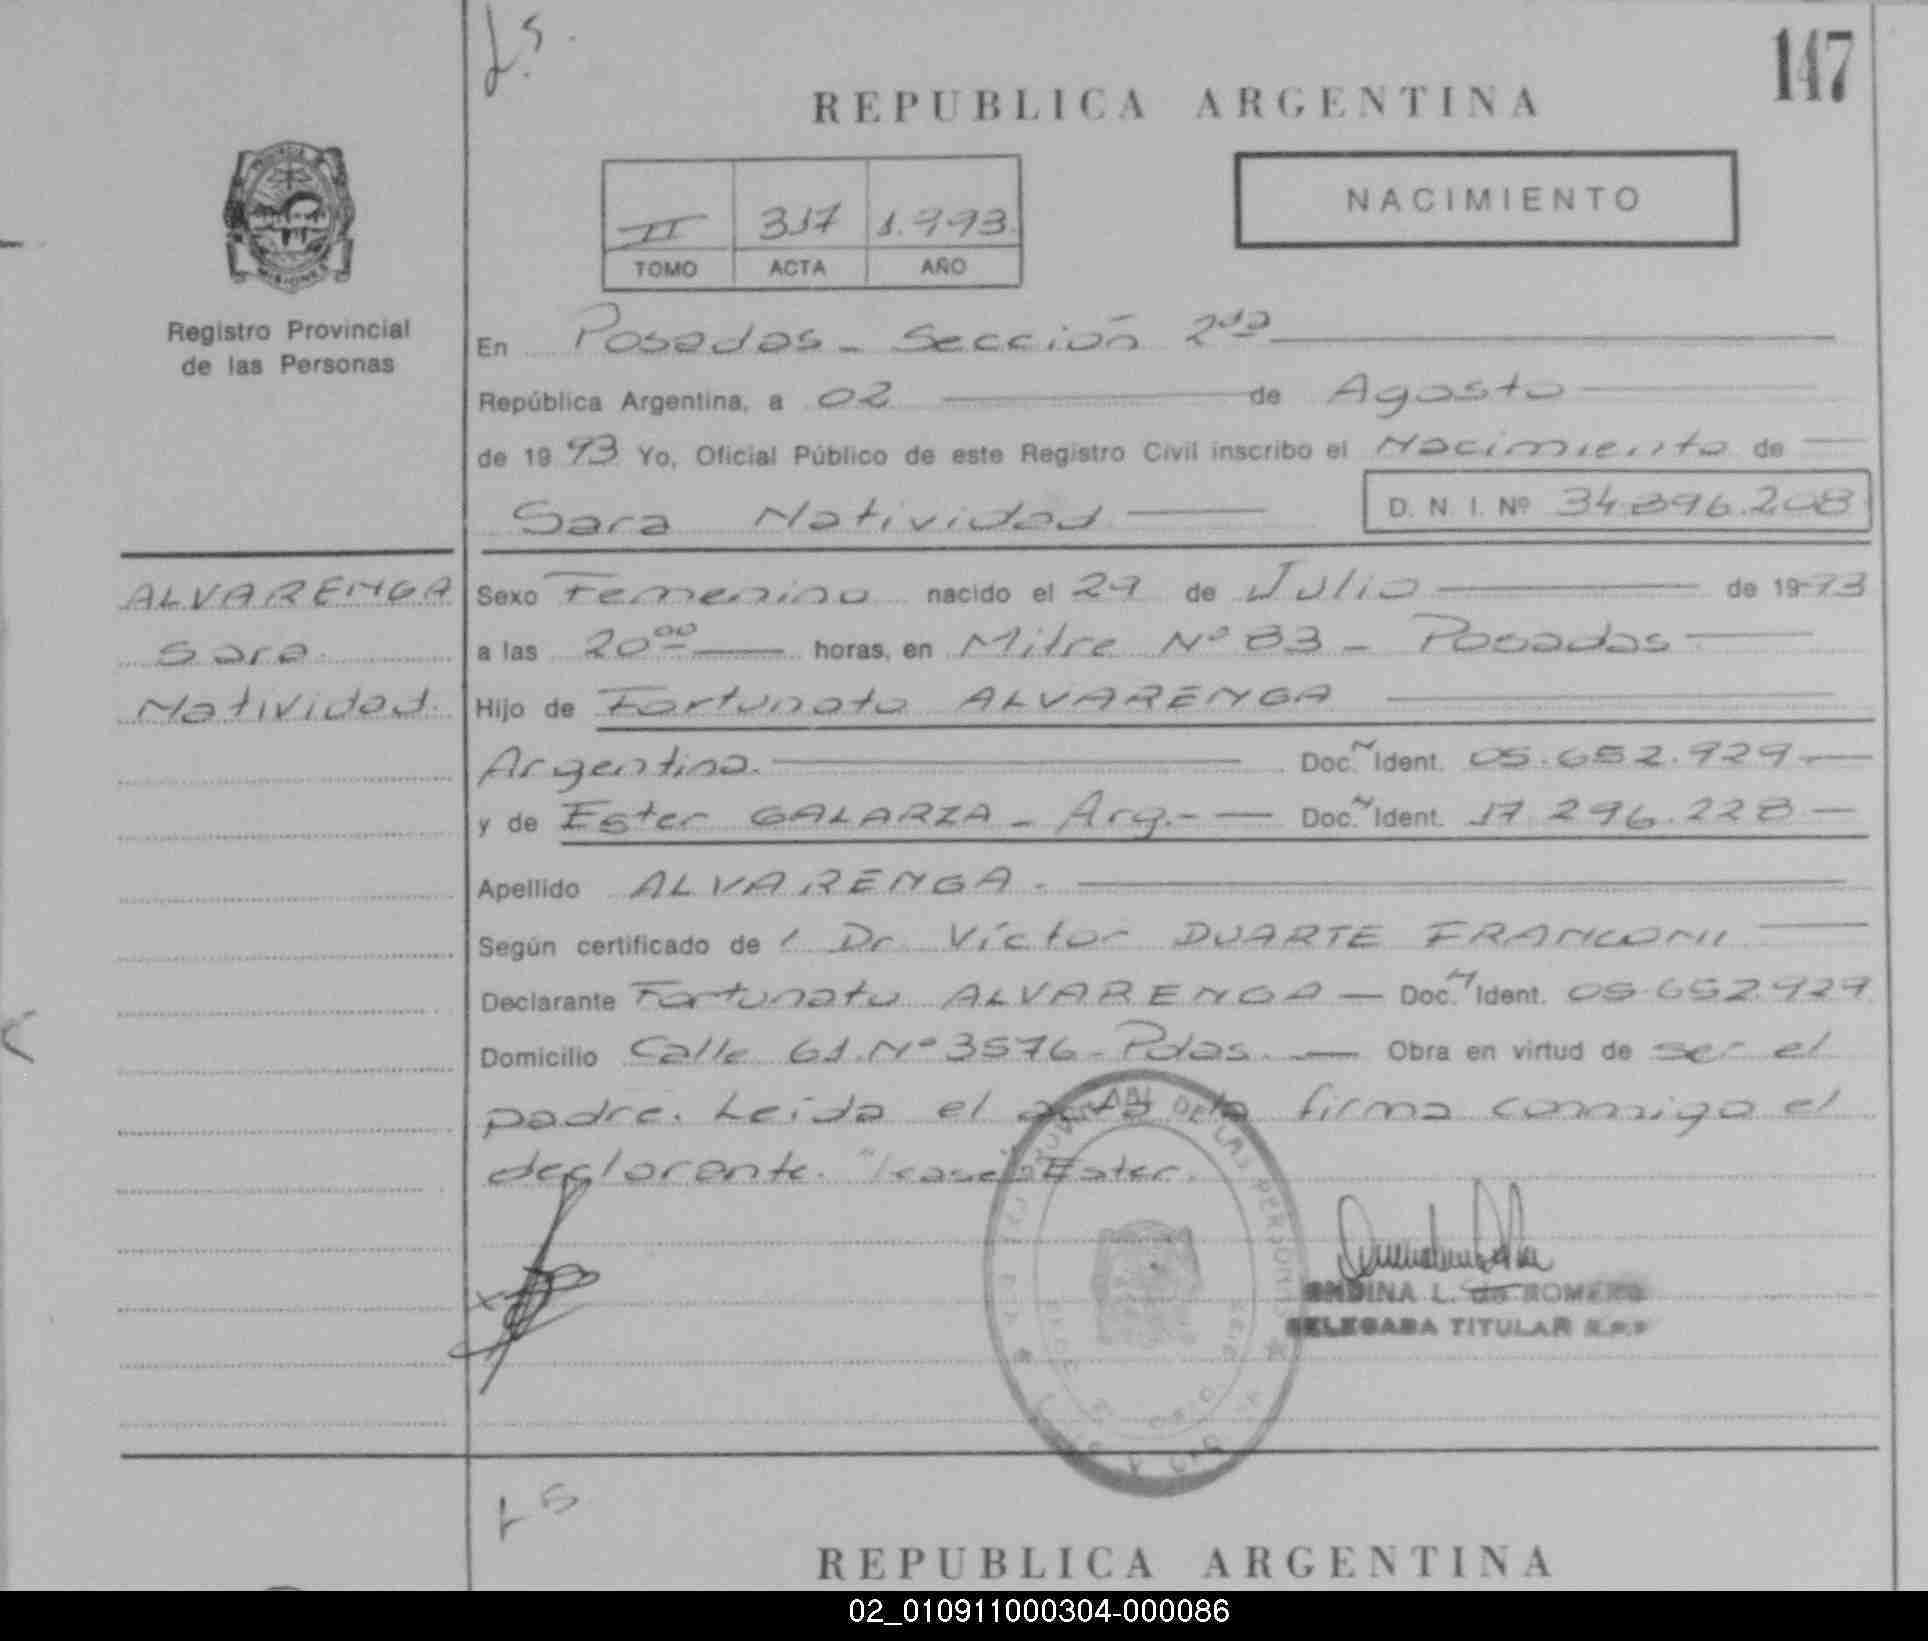 L S.
147
REPUBLICA ARGENTINA
II 317 1.993
TOMO ACTA AÑO
NACIMIENTO
MISIONES
Registro Provincial
de las Personas
En Posadas - Sección 2da
República Argentina, a 02 de Agosto
de 1993 Yo, Oficial Público de este Registro Civil inscribo el Nacimiento de
Sara Natividad D. N. I. Nº 34.896.208
ALVARENGA
Sara
Natividad.
Sexo Femenino nacido el 29 de Julio de 1993
a las 20⁰⁰ horas, en Mitre Nº 83 - Posadas
Hijo de Fortunato ALVARENGA
Argentina. Doc. N Ident. 05.652.929
y de Ester GALARZA - Arg.- Doc. N Ident. 17.296.228
Apellido ALVARENGA.
Según certificado de Dr. Víctor DUARTE
Declarante Fortunato ALVARENGA Doc. N Ident. 05.652.929
Domicilio Calle 61.Nº 3576 - Pdas. Obra en virtud de ser el
padre. Leída el acta la firma conmigo el
declarante. "lease": Ester.
DE LAS PERSONAS
L. de ROMERO
DELEGADA TITULAR R.P.P
L S
REPUBLICA ARGENTINA
02_010911000304-000086